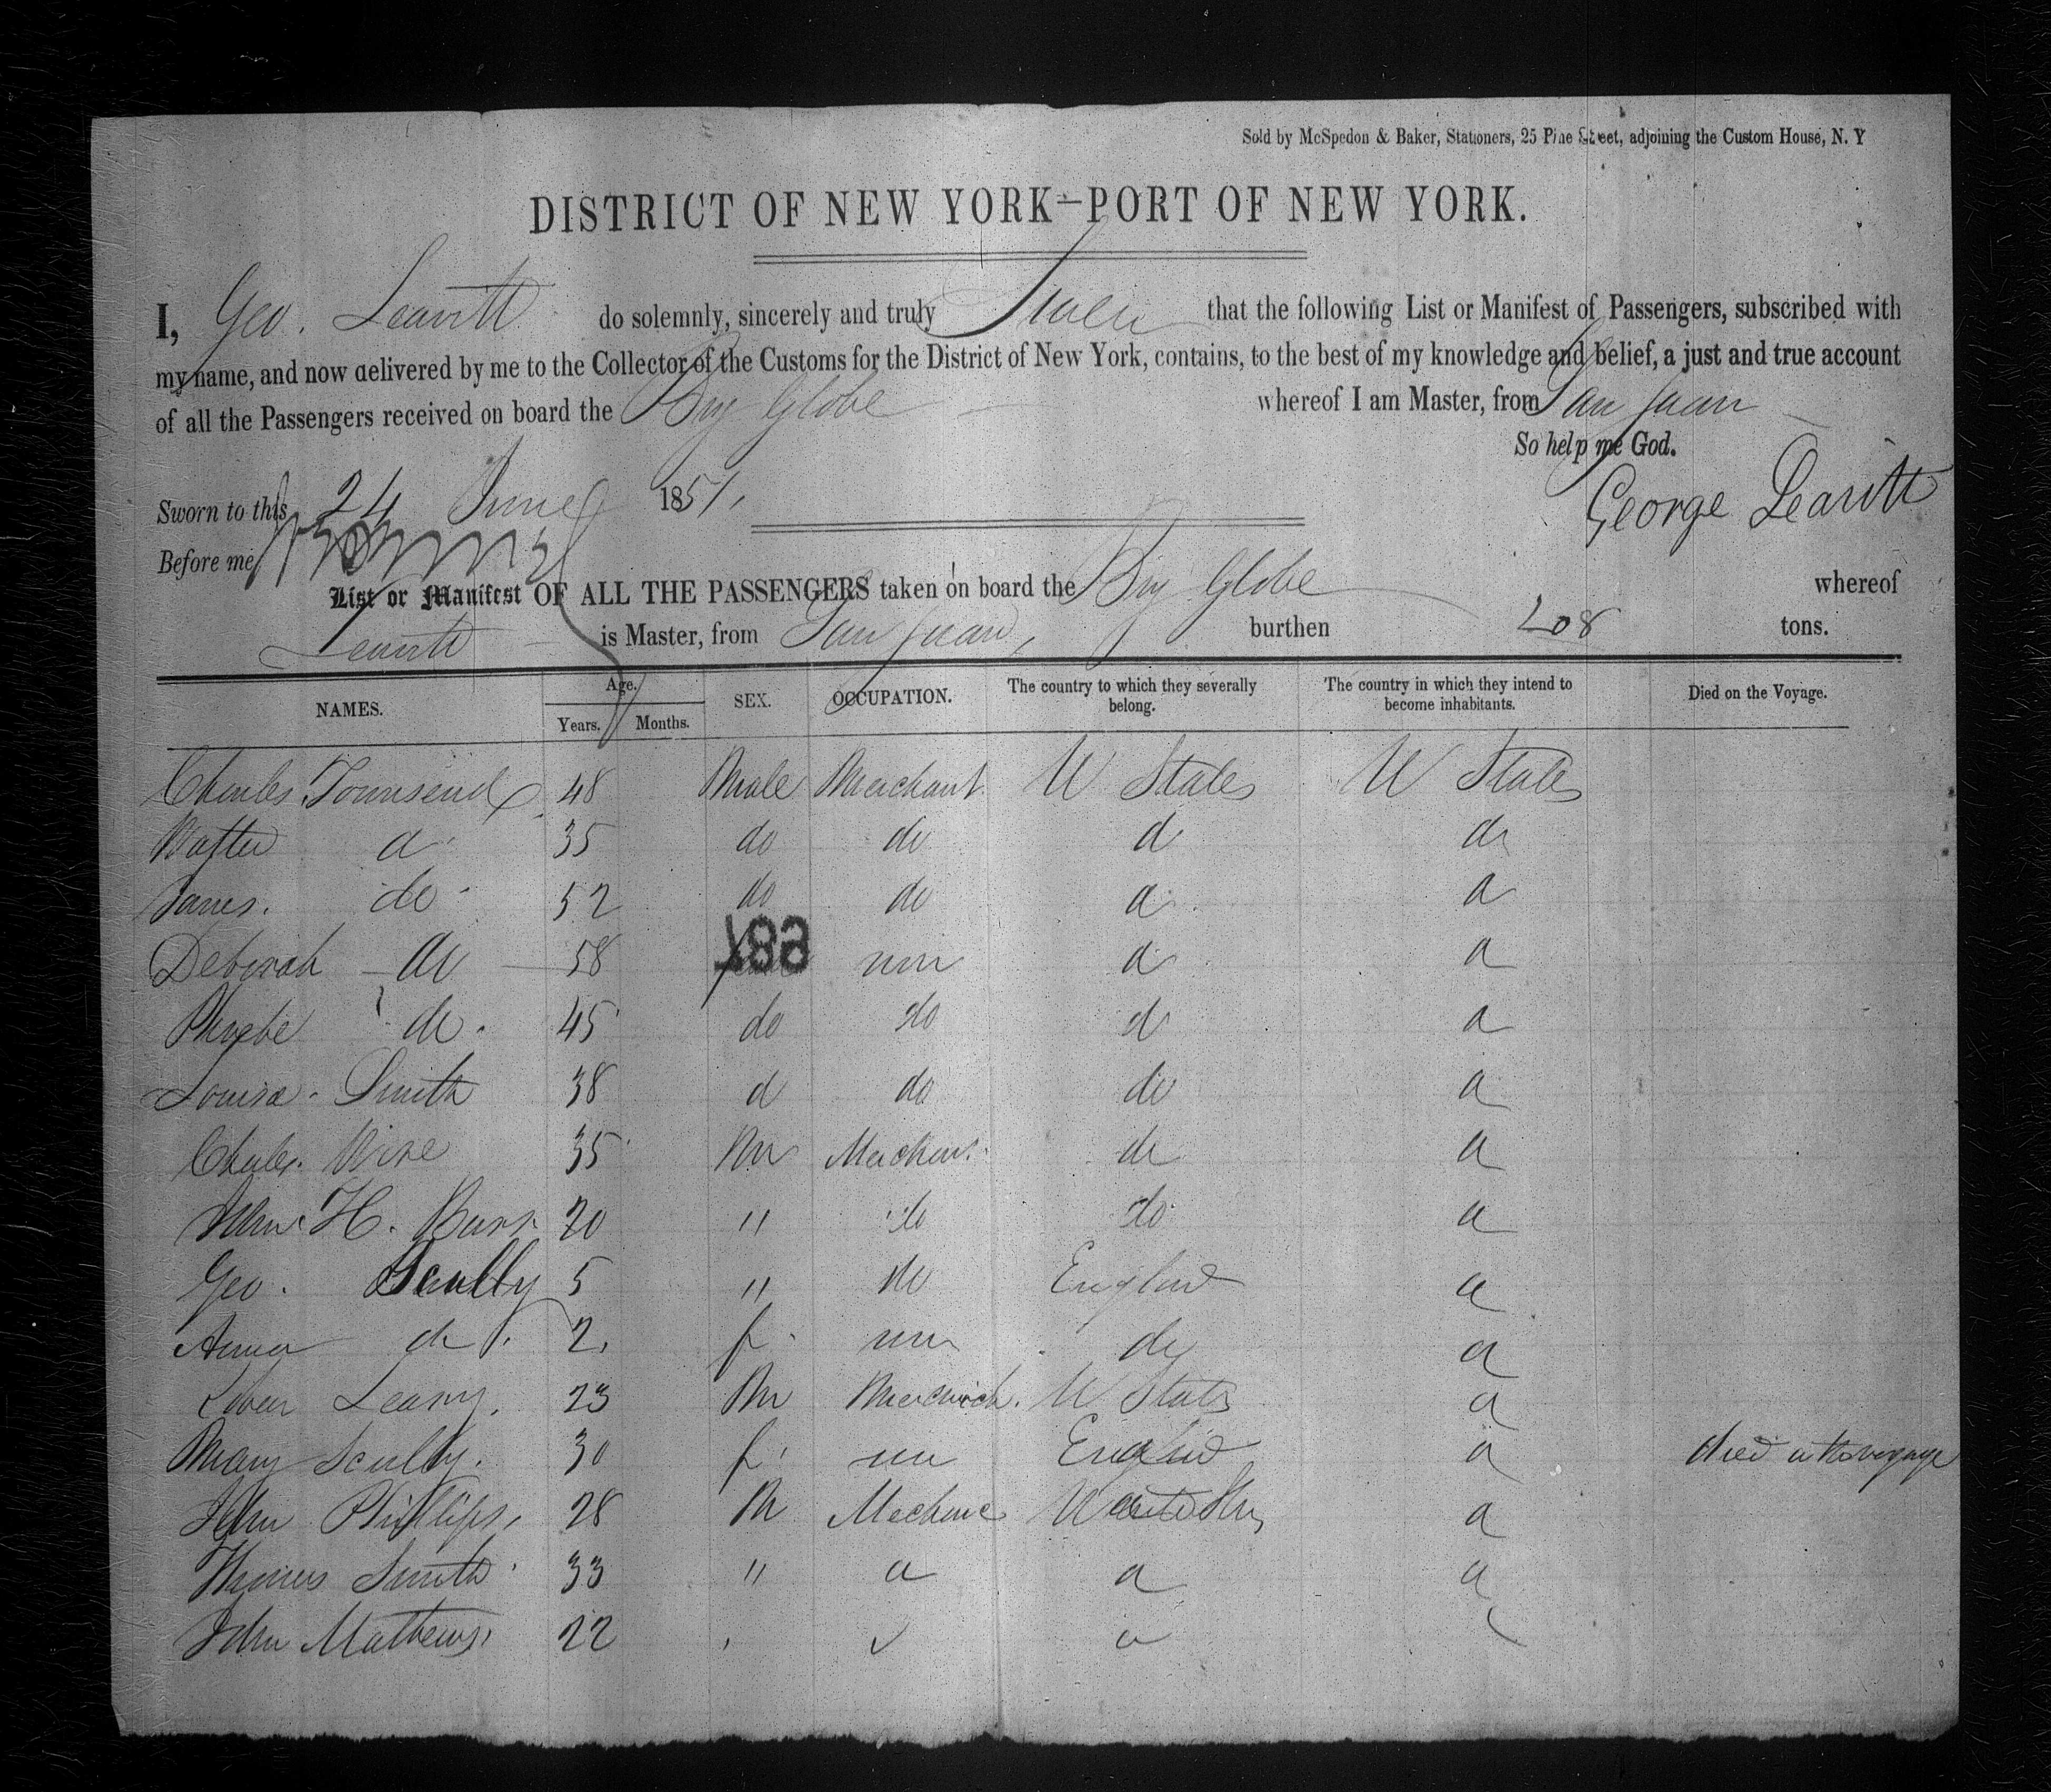 Sold by McSpedon & Baker, Stationers, 25 Pine Street, adjoining the Custom House, N. Y
DISTRICT OF NEW YORK—PORT OF NEW YORK.
I, Geo. Leavitt do solemnly, sincerely and truly Swear that the following List or Manifest of Passengers, subscribed with
my name, and now delivered by me to the Collector of the Customs for the District of New York, contains, to the best of my knowledge and belief, a just and true account
of all the Passengers received on board the Brig Globe whereof I am Master, from San Juan
So help me God.
Sworn to this 24 June 1851, George Leavitt
Before me
List or Manifest OF ALL THE PASSENGERS taken on board the Brig Globe whereof
Leavitt is Master, from San Juan, burthen 208 tons.
NAMES. Age. Years. Months. SEX. OCCUPATION. The country to which they severally belong. The country in which they intend to become inhabitants. Died on the Voyage.
Charles Townsend 48 Male Merchant U States U States
do 35 do do do do
James. do 52 do do do do
Deborah do 58 do do
189
Phoebe do. 45 do do do do
Louisa Smith 38 do do do do
Charles 35 M Merchant do do
John H. Burr 20 " do do do
Geo. Scully 5 " do England do
Anna do 2 f do do
Leary. 23 M U States do
Mary Scully. 30 f England do died on the voyage
John Phillips, 28 M Mechanic United States do
Thomas Smith 33 " do do do
John Mathews 22 do